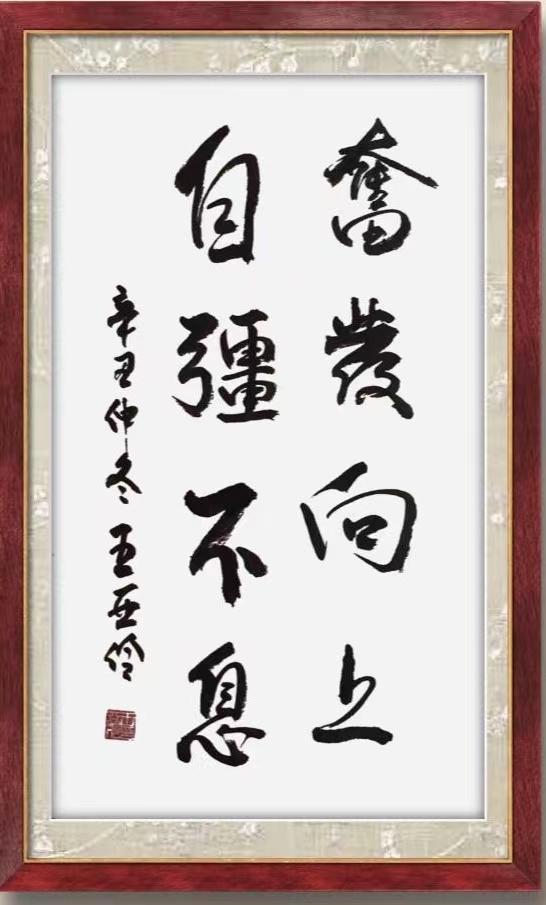 奮發向上
自彊不息
辛丑仲冬王亚伶